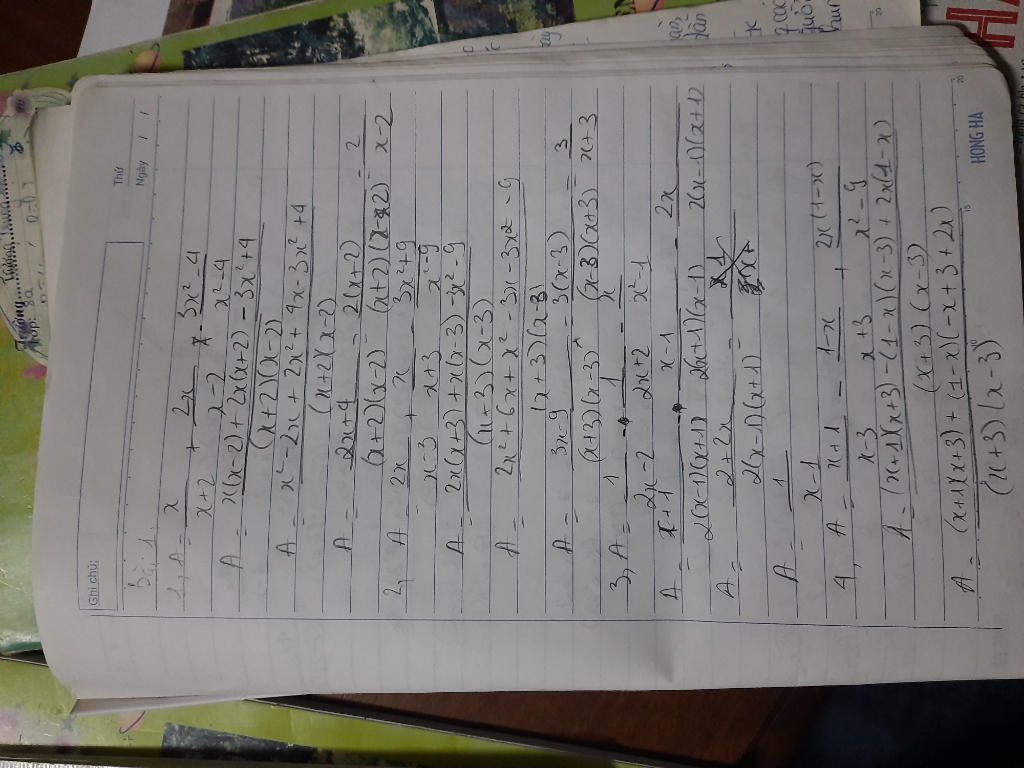 Ghi chú:
Thứ
Ngày
Bài 1
1, A = x/(x+2) + 2x/(x-2) - (3x²-4)/(x²-4)
A = (x(x-2) + 2x(x+2) - 3x²+4)/((x+2)(x-2))
A = (x² - 2x + 2x² + 4x - 3x² + 4)/((x+2)(x-2))
A = (2x+4)/((x+2)(x-2)) = 2(x+2)/((x+2)(x-2)) = 2/(x-2)
2, A = 2x/(x-3) + x/(x+3) - (3x²+9)/(x²-9)
A = (2x(x+3) + x(x-3) - 3x²-9)/((x+3)(x-3))
A = (2x² + 6x + x² - 3x - 3x² - 9)/((x+3)(x-3))
A = (3x-9)/((x+3)(x-3)) = 3(x-3)/((x-3)(x+3)) = 3/(x+3)
3, A = 1/(2x-2) - 1/(2x+2) - x/(x²-1)
A = (x+1)/(2(x-1)(x+1)) - (x-1)/(2(x+1)(x-1)) - 2x/(2(x-1)(x+1))
A = (2+2x)/(2(x-1)(x+1)) =
A = 1/(x-1)
4, A = (x+1)/(x-3) - (1-x)/(x+3) + 2x(1-x)/(x²-9)
A = ((x+1)(x+3) - (1-x)(x-3) + 2x(1-x))/((x+3)(x-3))
A = ((x+1)(x+3) + (1-x)(-x+3+2x))/((x+3)(x-3))
HONG HA